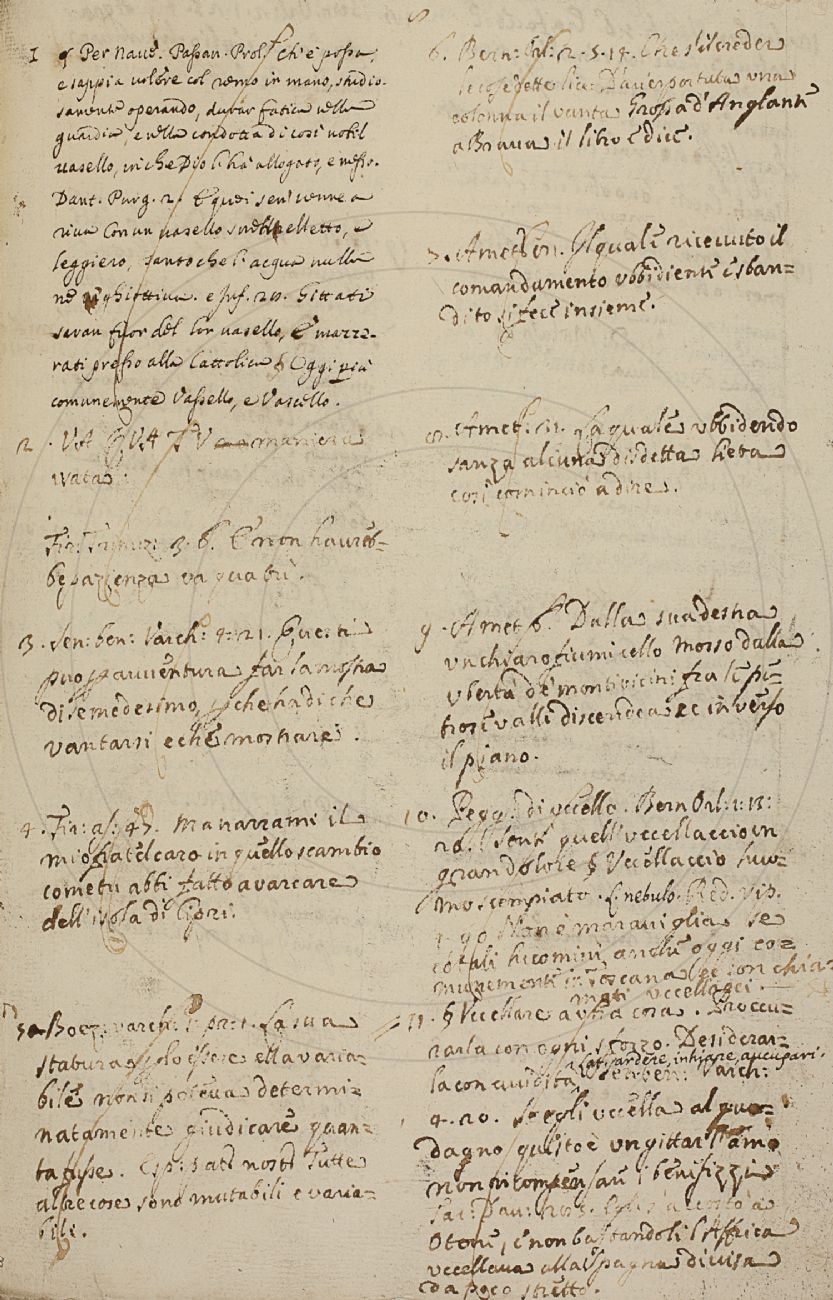 1 § Per Nave. Passav. Prol. ch' e' possa,
e sappia volere col remo in mano, studio-
samente operando, durar fatica nella
guardia, e nella condotta di così nobil
vasello, in che Dio l'ha allogato, e messo.
Dant. Purg. 2. E quei sen' venne a
riva Con un vasello snelletto, e
leggiero, Tanto che l'acqua nulla
ne inghiottiva. e Inf. 28. Gittati
saran fuor del lor vasello, E mazze-
rati presso alla Cattolica § Oggi più
comunemente Vassello, e Vascello.
2 . VA maniera
Fir: Trinuz: 3. 6. E non havreb-
be pazienza va qua tu.
3. Sen: ben: Varch: 4: 21. Questi
può avventura far la mostra
di se medesimo, perche ha di che
vantarsi e che mostrare.
4. Fir: as: 45. Ma narrami il
mio fratel caro in quello scambio
come tu abbi fatto a varcare
dell'isola di Cipri.
5. Boez: varch: l: pr: 1. La sua
statura solo essere ella varia-
bile non si poteva determi-
natamente giudicare quan-
ta fusse. Tutte
altre cose sono mutabili e varia-
bili.
6. Bern: Orl: 2. 5. 14. Che s'il creder
le cose dette lia: D'aver portata una
colonna il vanta Grossa d'Anglante
a Brava il libro e dice.
7. Amet: Il quale ricevuto il
comandamento ubbidiente e sban-
dito si fece insieme.
8. Amet: La quale ubbidendo
sanza alcuna disdetta lieta
così cominciò a dire.
9. Amet Dalla sua destra
un chiaro fiumicello mosso dalla
ubertà de' monti vicini fra le pe-
trose valli discendea ec inverso
il piano.
10. Pegg. di uccello. Bern Orl: 1: 13:
Sente quell'uccellaccio un
gran dolore § Uccellaccio huo-
mo scempiato. f. nebulo. Red. Vip.
1. 90 Non è maraviglia se
cotali huomini, anche oggi co-
munemente in Toscana con chia-
mati uccellacci.
11. § Uccellare a una cosa. Proccu-
rarla con ogni sforzo. Desiderar-
la con avidità Lat: ardere, inhiare, aucupari.
Sen: ben: Varch:
4. 20. So egli uccella al gua-
dagno questo è un gittar l'amo
non ricompensare i benifizzi
Tac: Dav: Egli s'accostò a
Otone, e non bastandoli l'Affrica
uccellava alla Spagna divisa
da poco stretto.